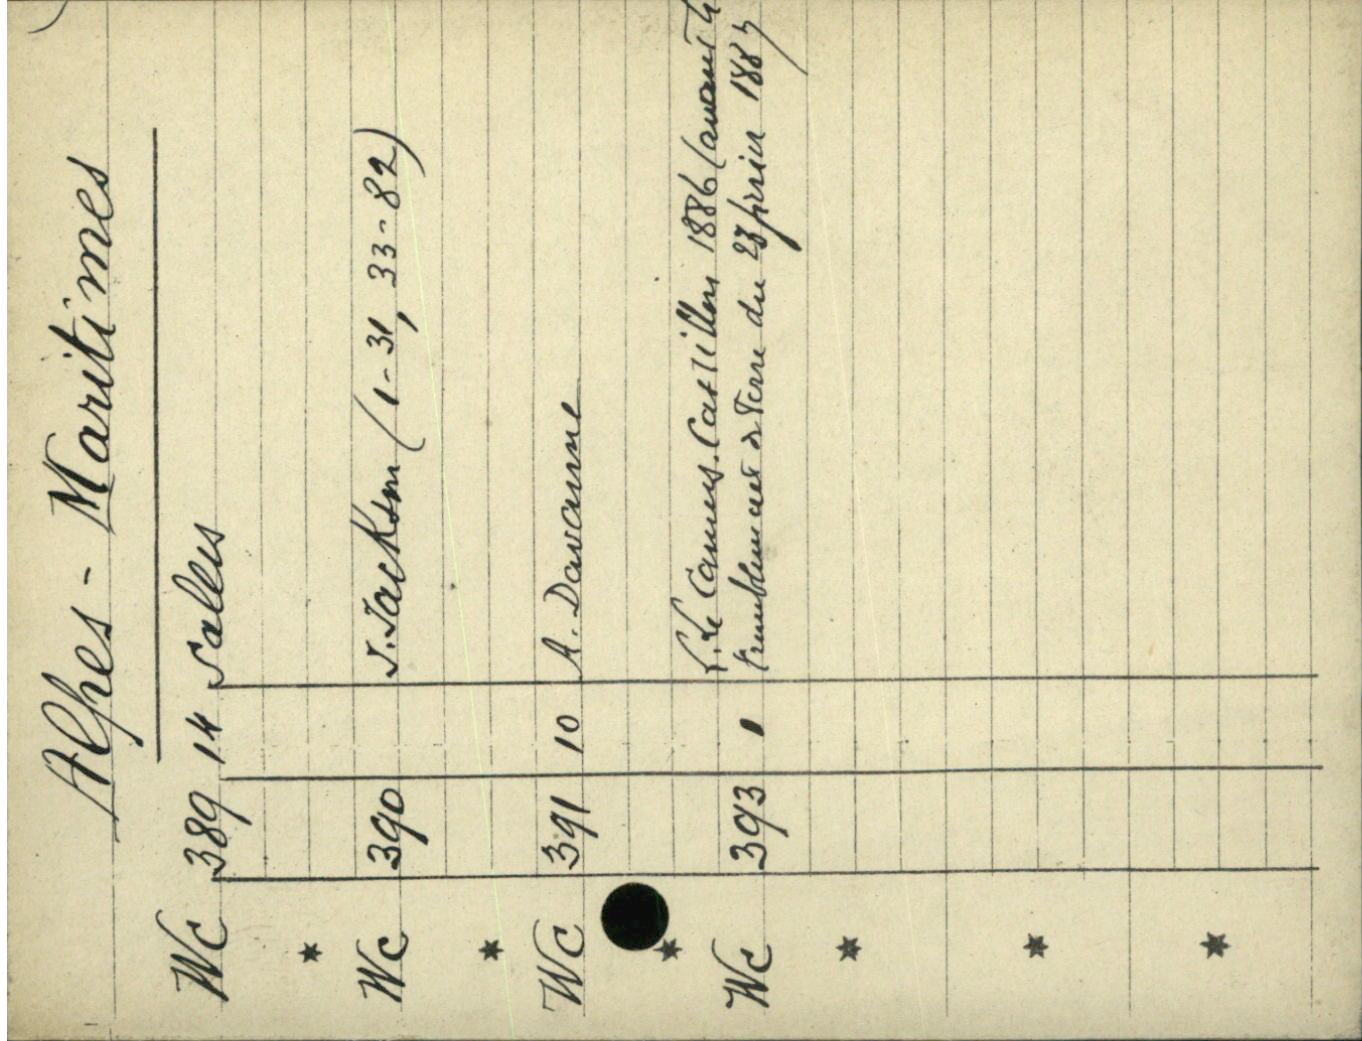 Alpes - Maritimes
Wc 389 14 Salles
Wc 390 J. Jackson (1-31, 33-82)
Wc 391 10 A. Davanne
L. Le Camus. Castillon 1886 (avant le
Wc 393 1 tremblement de Terre du 23 février 1887